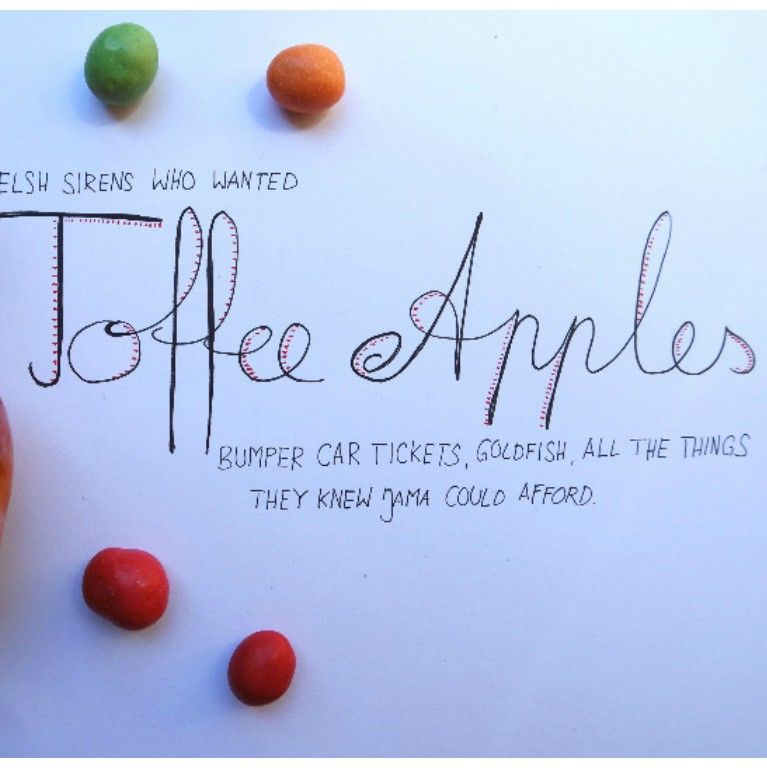 ELSH SIRENS WHO WANTED
Toffee Apples
BUMPER CAR TICKETS, GOLDFISH, ALL THE THINGS
THEY KNEW JAMA COULD AFFORD.